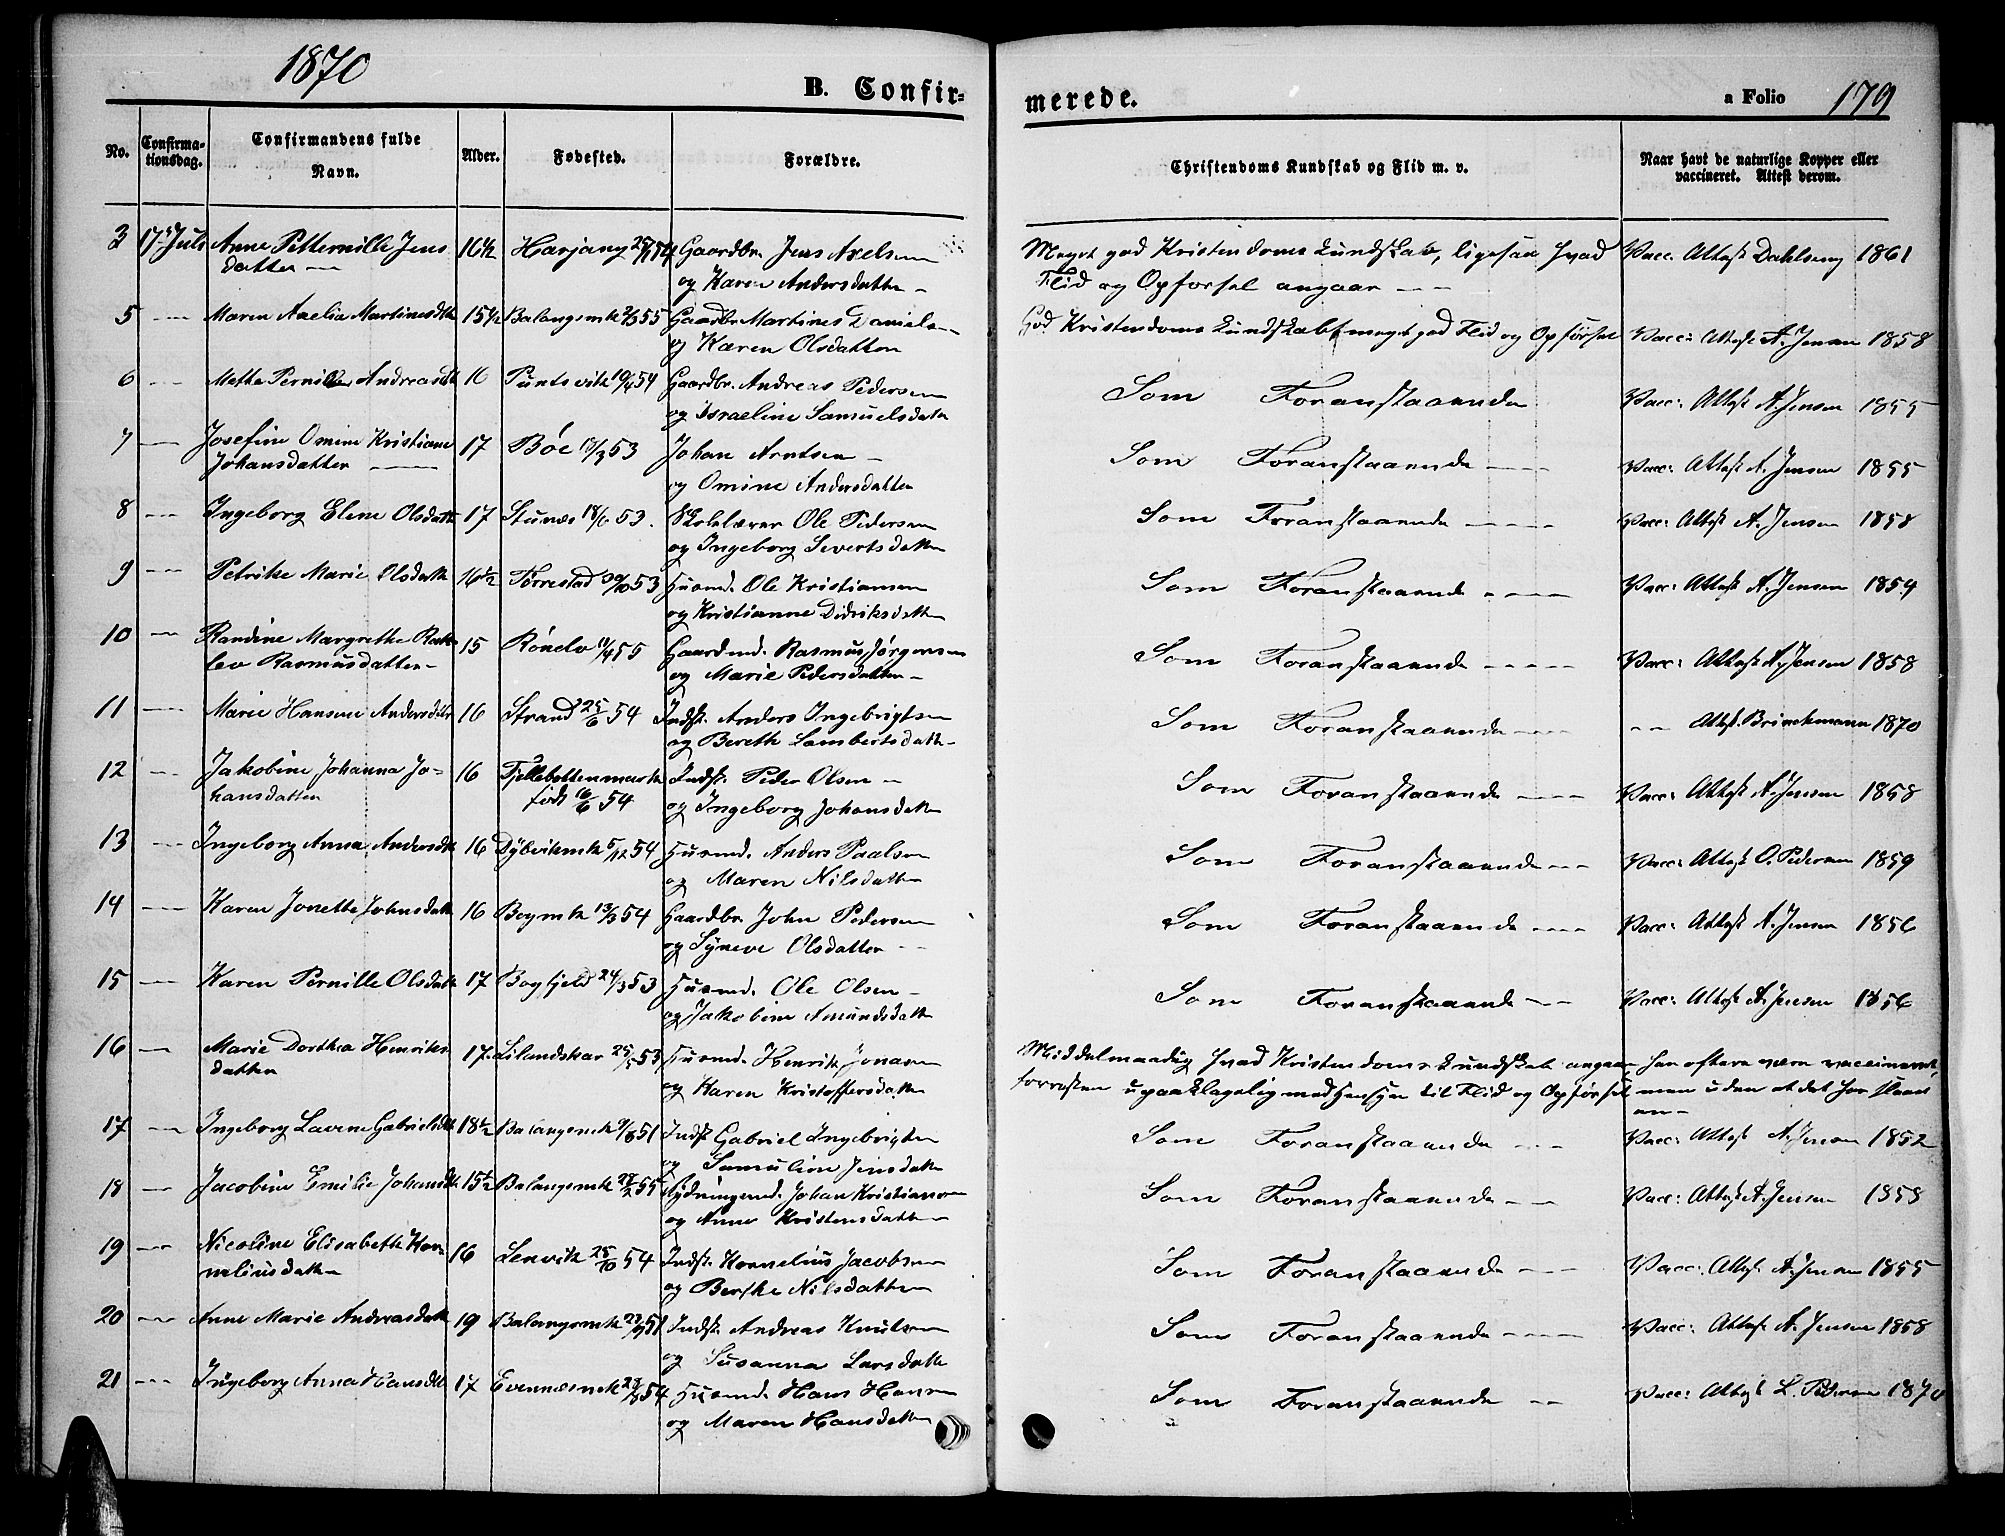 1870
B. Confir-
merede.
a Folio 179
No.
Confirma-
tionsdag.
Confirmandens fulde
Navn.
Alder.
Fødested.
Forældre.
Christendoms Kundskab og Flid m. v.
Naar havt de naturlige Kopper eller
vaccineret. Attest derom.
3 17 Juli Anne Petternille Jens 16½ Harjang 54 Gaardbr. Jens Axelsen Meget god Kristendoms Kundskab, ligesaa hvad Vacc. Attest Dahlseng 1861
datter og Karen Andersdatter Flid og Opførsel angaar
5 Maren Axelia Martinusdtr 15½ Balangsmk 55 Gaardbr Martines Daniels God Kristendoms Kundskab, meget god Flid og Opførsel Vacc: Attest A. Jensen 1858
og Karen Olsdatter
6 Mette Pernille Andreasdtr 16 Puntsvik 54 Gaardbr. Andreas Pedersen Som Foranstaaende Vacc: Attest A. Jensen 1855
og Israeline Samuelsdatter
7 Josefine Omine Kristiane 17 Bøe 18/3 53 Johan Arntsen Som Foranstaaende Vacc: Attest A. Jensen 1855
Johansdatter og Omine Andersdatter
8 Ingeborg Elene Olsdatt 17 Stunæs 53. Skolelærer Ole Pedersen Som Foranstaaende Vacc: Attest A. Jensen 1858
og Ingeborg Sivertsdatter
9 Petrike Marie Olsdatt 16½ Tørrestad 30/10 53 Husmd. Ole Kristiansen Som Foranstaaende Vacc: Attest A. Jensen 1854
og Kristianne Didriksdatter
10 Randine Margrethe Rak- 15 Rønelv 11/4 55 Gaardmd. Rasmus Jørgensen Som Foranstaaende Vacc: Attest A. Jensen 1858
lev Rasmusdatter og Marie Pedersdatter
11 Marie Hansine Andersdatr 16 Strand 25/6 54 Indst. Anders Ingebrigtsen Som Foranstaaende Attest. Brinchmann 1870
og Bereth Lambertsdatter
12 Jakobine Johanna Jo- 16 Fjellebottenmark Indst. Peder Olsen Som Foranstaaende Vacc: Attest A. Jensen 1858
hansdatter født 16/6 54 og Ingeborg Johansdatter
13 Ingeborg Anna Andersdtr 16 Dybvikmk 5/12 54 Husmd. Anders Paalsen Som Foranstaaende Vacc: Attest O. Pedersen 1859
og Maren Nilsdatter
14 Karen Jonette Johnsdatt 16 Bogmk 13/3 54 Gaardbr. John Pedersen Som Foranstaaende Vacc: Attest A. Jensen 1856
og Syneve Olsdatter
15 Karen Pernille Olsdatt 17 Bogfjeld 24/3 53 Husmd. Ole Olsen Som Foranstaaende Vacc: Attest A. Jensen 1856
og Jakobine Amundsdatter
16 Marie Dorthea Henriks 17 Lilandskar 25/5 53 Husmd. Henrik Jonasen Middelmaadig hvad Kristendoms Kundskab angaar, har oftere være vaccineret,
datter og Karen Kristoffersdatter forresten upaaklagelig med Hensyn til Flid og Opførsel men uden at det har slaaet
an
17 Ingeborg Lavine Gabrielsdtr 18½ Balangsmk 51 Indst Gabriel Ingebrigtsen Som Foranstaaende Vacc: Attest A. Jensen 1852
og Jensdatter
18 Jacobine Emilie Johansdtr 15½ Balangsmk 28/2 55 Rydningsmd. Johan Kristiansen Som Foranstaaende Vacc: Attest A. Jensen 1858
og Anne Kristensdatter
19 Nicoline Elisabeth Kor- 16 Lenvik 25/10 54 Indst. Kornelius Jacobsen Som Foranstaaende Vacc: Attest A. Jensen 1855
neliusdatter og Berthe Nilsdatter
20 Anne Marie Andreasdatt 19 Balangsmk 51 Indst. Andreas Knutsen Som Foranstaaende Vacc: Attest A. Jensen 1858
og Susanna Larsdatter
21 Ingeborg Anna Hansdtr 17 Evennæsmk 54 Husmd. Hans Hansen Som Foranstaaende Vacc: Attest L. Pedersen 1870
og Maren Hansdatter